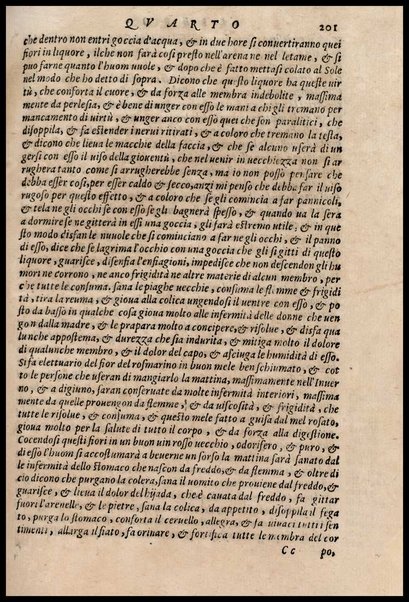 QVARTO 201
che dentro non entri goccia d'acqua, & in due hore si conuertiranno quei
fiori in liquore, ilche non farà così presto nell'arena ne nel letame, & si
puo farne quanto l'huom uuole, & dopo che è fatto mettasi colato al Sole
nel modo che ho detto di sopra. Dicono che questo liquore ha queste uir
tù, che conforta il cuore, & da forza alle membra indebolite, massima
mente da perlesia, & è bene di unger con esso le mani a chi gli tremano per
mancamento di uirtù, & unger anco con esso quei che son paralitici, che
disoppila, & fa estender i nerui ritirati, & a coloro che tremano la testa,
& dicono che lieua le macchie della faccia, & che se alcuno userà di un
gersi con esso il uiso della giouentù, che nel uenir in uecchiezza non si ar
rugherà tanto come si arrugherebbe senza, ma io non posso pensare che
debba esser così, per esser caldo & secco, anzi mi penso che debba far il uiso
rugoso per questo effetto, & a coloro che se gli comincia a far pannicoli,
& tela ne gli occhi se con esso se gli bagnerà spesso, & quando ua la sera
a dormire se ne gitterà in essi una goccia, gli farà estremo utile, & in que
sto modo disfan le nuuole che si cominciano a far ne gli occhi, & il panno
di esso, dice che se lagrima l'occhio con una goccia che gli si gitti di questo
liquore, guarisce, disensia l'ensiagioni, impedisce che non descendon gli hu
mori ne corrono, ne anco frigidità ne altre materie di alcun membro, per
che tutte le consuma. sana le piaghe uecchie, consuma le flemme & frigidi
tà, tira la reuma, & gioua alla colica ungendosi il uentre con esso, & po
sto da basso in qualche cosa gioua molto alle infermità delle donne che uen
gon dalla madre, & le prepara molto a concipere, & risolue, & disfa qua
lunche appostema, & durezza che sia indurita, & mitiga molto il dolore
di qualunche membro, & il dolor del capo, & asciuga le humidità di esso.
Si fa elettuario del fior del rosmarino in buon mele ben schiumato, & cot
to le persone che useran di mangiarlo la mattina, massimamente nell'Inuer
no, & a digiuno, saran conseruate da molte infermità interiori, massima
mente da quelle prouengon da flemme, & da uiscosità, & frigidità, che
tutte le risolue, & consuma, & questo mele fatto a guisa dal mel rosato,
gioua molto per la salute di tutto il corpo, & da forza alla digestione.
Cocendosi questi fiori in un buon uin rosso uecchio, odorifero, & puro, &
di esso l'huom si accostumarà a beuerne un sorso la mattina sarà sanato dal
le infermità dello stomaco che nascon da freddo, & da flemma, & oltre di
ciò dicono che purgano la colera, sana il uomito che prouiene dal freddo, &
guarisce, & lieua il dolor del hijada, che è cauata dal freddo, fa gittar
fuori l'arenelle, & le pietre, sana la colica, da appetito, disoppila il fega
to, purga lo stomaco, conforta il ceruello, allegra, & fa uiuaci tutti i sen
timenti, allarga il fiato, fa orinare, & fortifica tutte le membra del cor
Cc po,